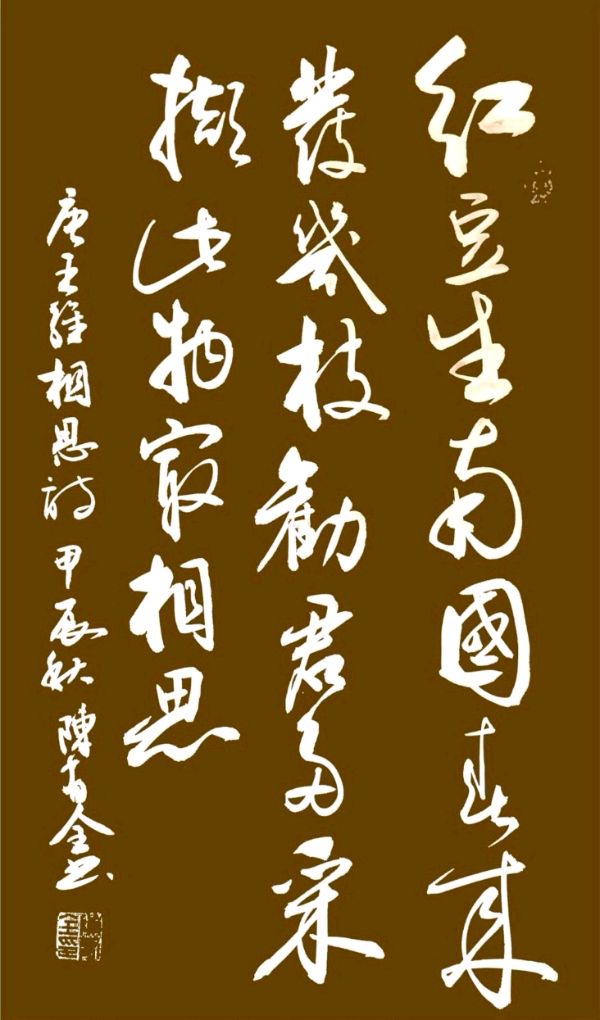 紅豆生南國春來
發幾枝勸君多采
擷此物最相思
唐王維相思詩甲辰秋陳有全書